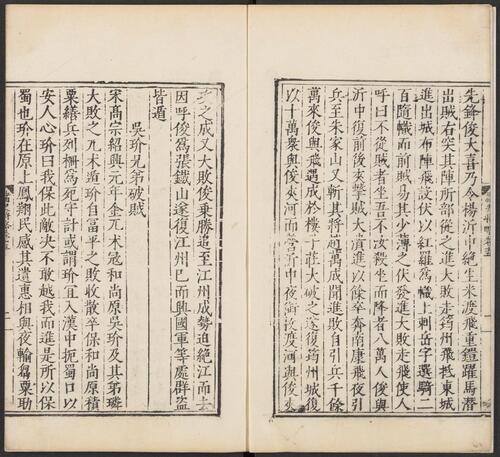 先鋒俊大喜乃令楊沂中絶生米渡飛重鎧躍馬潛
出賊右突其陣所部從之進大敗走筠州飛抵東城
進出城布陣飛設伏以紅羅爲幟上刺岳字選騎二
百隨幟而前賊易其少薄之伏發進大敗走飛使人
呼曰不從賊者坐吾不汝殺坐而降者八萬人俊與
沂中復前後夾擊賊大潰進以餘卒奔南康飛夜引
兵至朱家山又斬其將趙萬成聞進敗自引兵十餘
萬來俊與飛遇成於樓子莊大破之遂復筠州城復
以十萬衆與俊夾河而營沂中夜銜枚度河與俊夾
之成又大敗俊乘勝追至江州成勢迫絶江而去
因呼俊爲張鐵山遂復江州已而興國軍等處群盜
皆遁
吳玠兄弟破賊
宋高宗紹興元年金兀朮寇和尚原吳玠及其弟璘
大敗之兀朮遁玠自富平之敗收散卒保和尚原積
粟繕兵列柵爲死守計或謂玠宜入漢中扼蜀口以
安人心玠曰我保此敵決不敢越我而進是所以保
蜀也玠在原上鳳翔民感其遺惠相與夜輸芻粟助